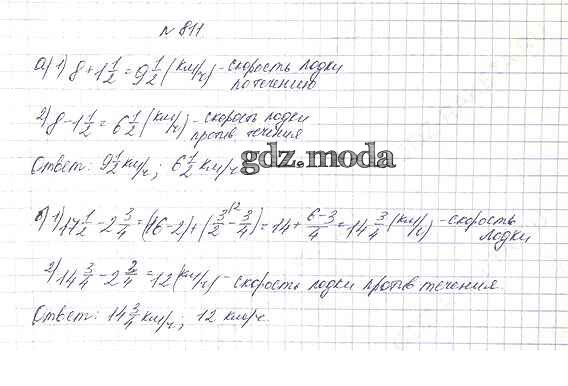 № 811
а) 1) 8 + 1 1/2 = 9 1/2 (км/ч) - скорость лодки
по течению
2) 8 - 1 1/2 = 6 1/2 (км/ч) - скорость лодки
против течения
Ответ: 9 1/2 км/ч; 6 1/2 км/ч
gdz.moda
б) 1) 17 1/2 - 2 3/4 = (16-2) + (3/2 - 3/4) = 14 + 6-3/4 = 14 3/4 (км/ч) - скорость
лодки
2) 14 3/4 - 2 3/4 = 12 (км/ч) - скорость лодки против течения
Ответ: 14 3/4 км/ч; 12 км/ч.